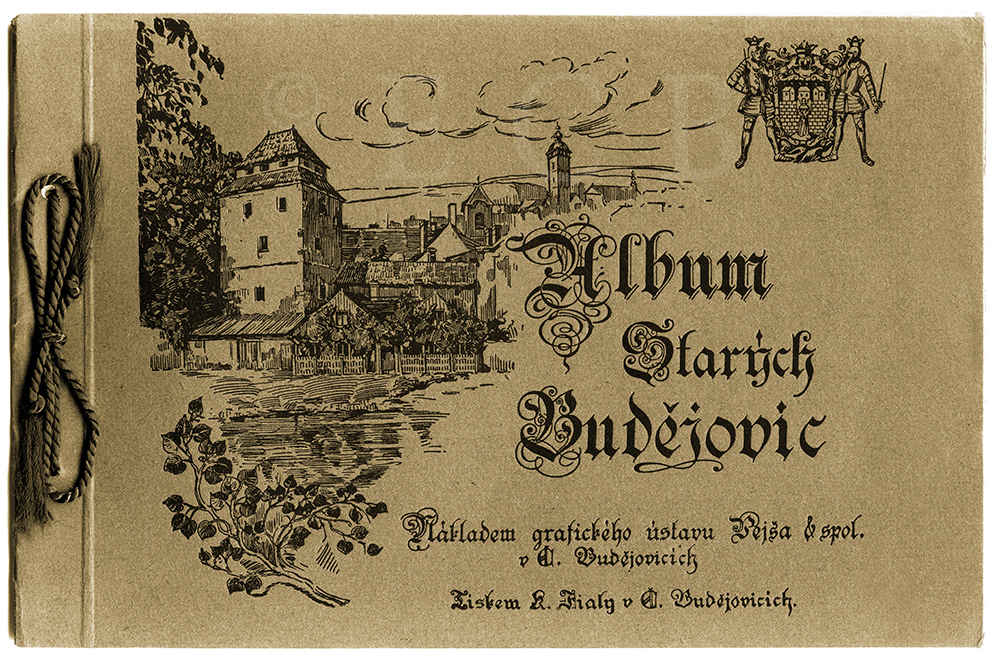 Album
Starých
Budějovic
Nákladem grafického ústavu Pejša & spol.
v Č. Budějovicích
Tiskem K. Fialy v Č. Budějovicích.